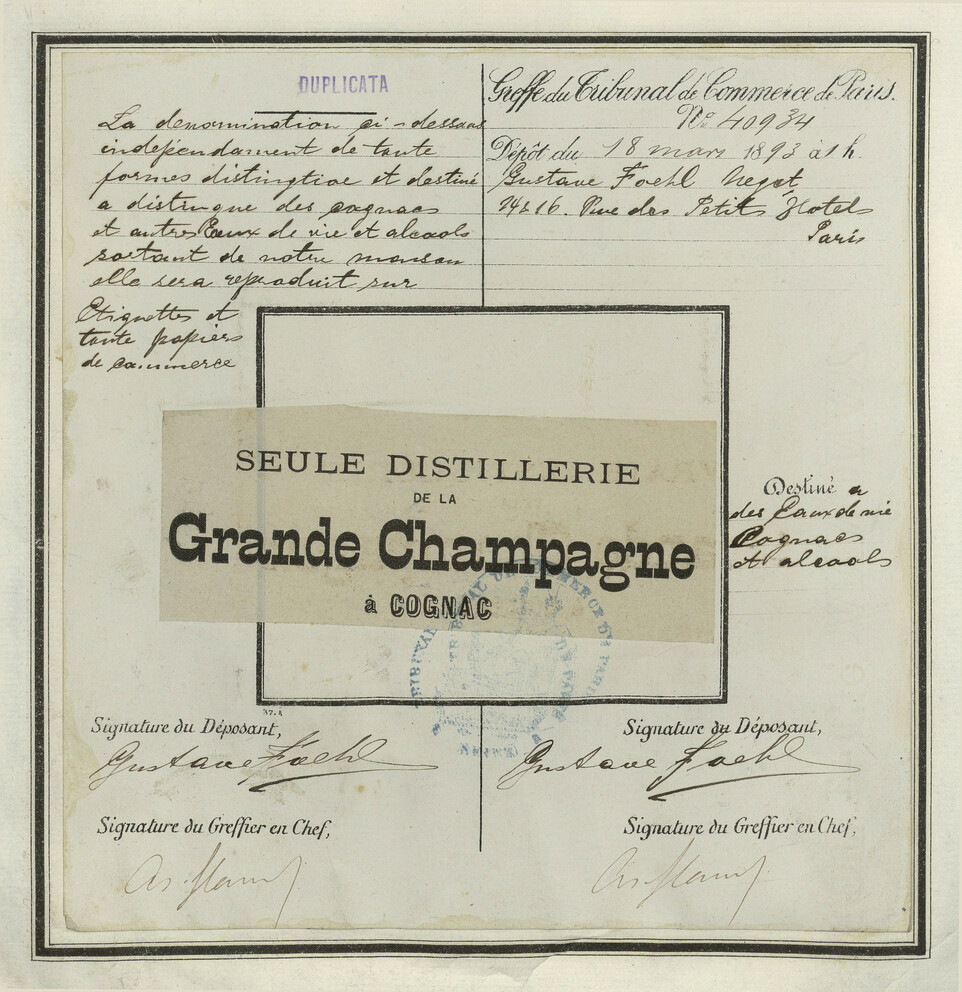 DUPLICATA
La denomination ci-dessous
indépendament de toute
formes distingtive et destiné
a distingue des cognacs
et autres Eaux de vie et alcools
sortant de notre maison
elle sera reproduit sur
Etiquettes et
toute papiers
de commerce
Greffe du Tribunal de Commerce de Paris.
No 40934
Dépôt du 18 mars 1893 à 1 h.
Gustave Foehl Negot
14 & 16. Rue des Petits Hotels
Paris
SEULE DISTILLERIE
DE LA
Grande Champagne
à COGNAC
Destiné a
des Eaux de vie
Cognacs
et alcools
TRIBUNAL DE COMMERCE DE PARIS
Signature du Déposant,
Gustave Foehl
Signature du Greffier en Chef,
Signature du Déposant,
Gustave Foehl
Signature du Greffier en Chef,